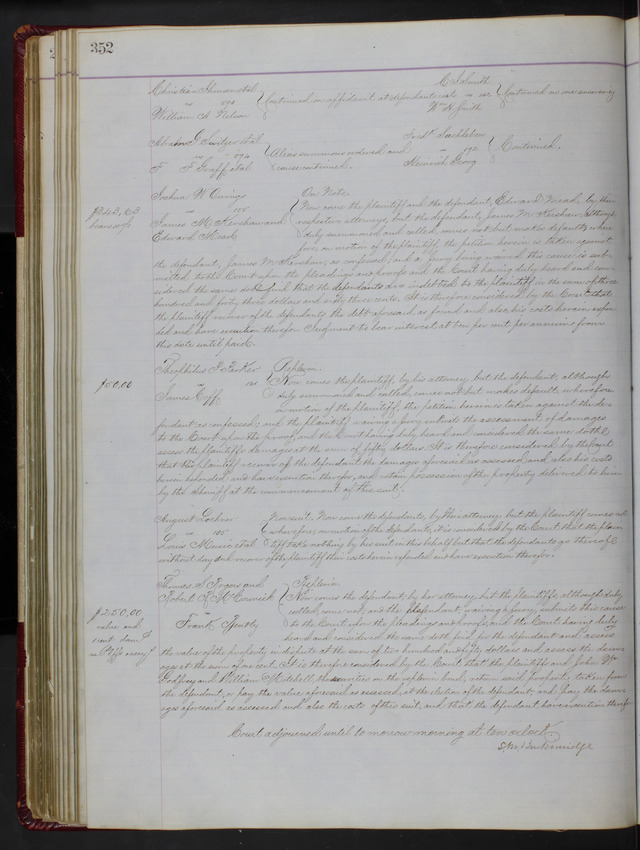 352
Christian
William A Nelson
Continued on affidavit at defendants cost
C Schmidt
vs
Wm H Smith
Continued
Abram G Switzer et al
Alias summons ordered and
cause continued.
Continued.
Joshua W Owings
vs
James M Kershaw and
Edward Mead
On Note.
$343,63
Now come the plaintiff and the defendant, Edward Mead, by their
respective attorneys, but the defendant, James M Kershaw, although
duly summoned and called, comes not but makes default; where
fore, on motion of the plaintiff, the petition herein is taken against
the defendant, James M Kershaw, as confessed; and a jury being waived this cause is sub-
mitted to the Court upon the pleadings and proofs and the Court having duly heard and con-
sidered the same doth find that the defendants are indebted to the plaintiff in the sum of three
hundred and forty three dollars and sixty three cents. It is therefore considered by the Court that
the plaintiff recover of the defendants the debt aforesaid as found and also his costs herein expen-
ded and have execution therefor. Judgment to bear interest at ten per cent per annum from
this date until paid.
Theophilus F Parker
vs
James Eiffe
Replevin.
$50,00
Now comes the plaintiff, by his attorney, but the defendant, although
duly summoned and called, comes not but makes default; wherefore
on motion of the plaintiff, the petition herein is taken against the de-
fendant as confessed; and the plaintiff, waiving a jury, submits the assessment of damages
to the Court upon the proofs, and the Court having duly heard and considered the same doth
assess the plaintiffs damages at the sum of fifty dollars. It is therefore considered by the Court
that the plaintiff recover of the defendant the damages aforesaid as assessed and also his costs
herein expended, and have execution therefor, and retain possession of the property delivered to him
by the sheriff at the commencement of this suit.
August
vs
Louis et al
Nonsuit. Now come the defendants, by their attorney, but the plaintiff comes not
wherefore, on motion of the defendants, it is considered by the Court that the plain
tiff take nothing by his suit in this behalf but that the defendants go thereof
without day and recover of the plaintiff their costs herein expended and have execution therefor.
Thomas S Rogers and
Robert L McCormick
vs
Frank
Replevin.
$250,00
value and
1 cent dam
Now comes the defendant, by her attorney, but the plaintiffs, although duly
called, come not, and the defendant, waiving a jury, submits this cause
to the Court upon the pleadings and proofs, and the Court having duly
heard and considered the same doth find for the defendant and assess
the value of the property in dispute at the sum of two hundred and fifty dollars and assess the dama-
ges at the sum of one cent. It is therefore considered by the Court that the plaintiffs and John W
Godfrey and William Mitchell, the securities on the replevin bond, return said property, taken from
the defendant, or pay the value aforesaid as assessed, at the election of the defendant; and pay the dama-
ges aforesaid as assessed and also the costs of this suit, and that the defendant have execution therefor.
Court adjourned until to morrow morning at ten o'clock